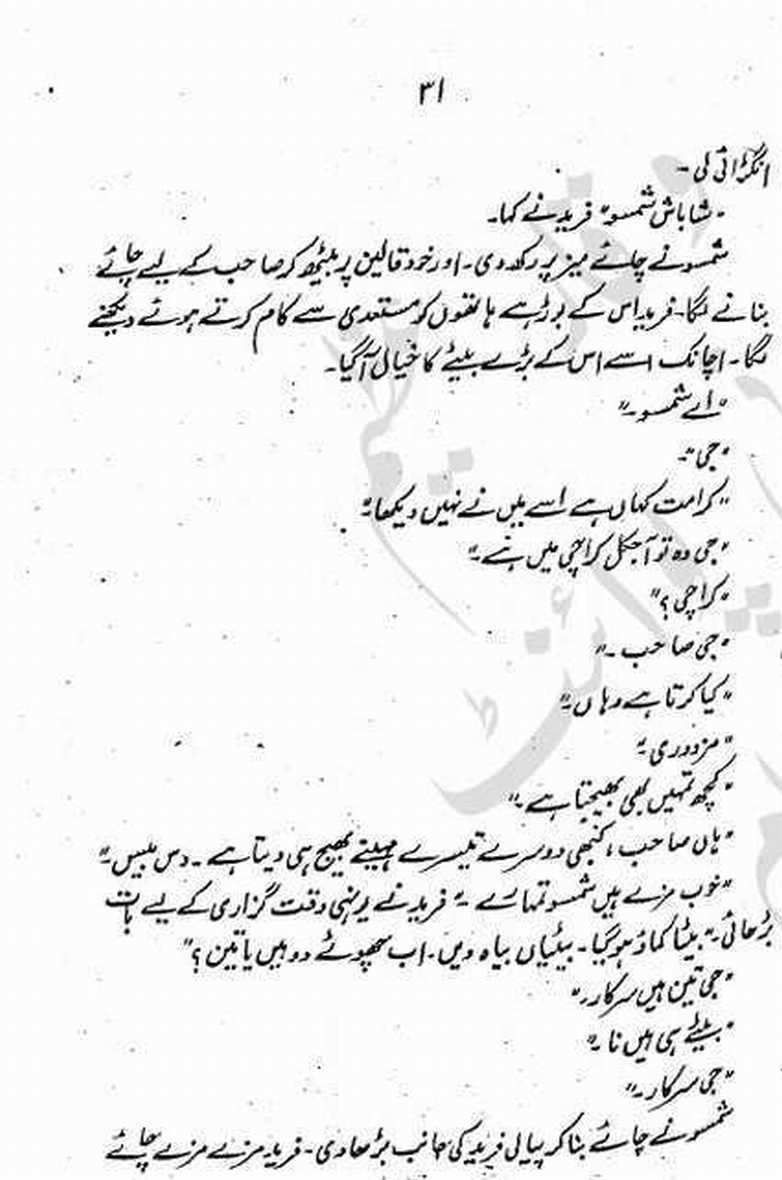 ۳۱
انگڑائی لی۔
"شاباش شمسو" فرید نے کہا۔
شمسو نے چائے میز پر رکھ دی۔ اور خود قالین پر بیٹھ کر صاحب کے لیے چائے
بنانے لگا۔ فرید اس کے بوڑھے ہاتھوں کو مستعدی سے کام کرتے ہوئے دیکھنے
لگا۔ اچانک اسے اس کے بڑے بیٹے کا خیال آ گیا۔
"اے شمسو۔"
"جی"۔
"کرامت کہاں ہے اسے میں نے نہیں دیکھا۔"
"جی وہ تو آجکل کراچی میں ہے۔"
"کراچی؟"
"جی صاحب۔"
"کیا کرتا ہے وہاں۔"
"مزدوری۔"
"کچھ تمہیں بھی بھیجتا ہے۔"
"ہاں صاحب، کبھی دوسرے تیسرے مہینے بھیج ہی دیتا ہے۔ دس بیس۔"
"خوب مزے ہیں شمسو تمہارے۔" فرید نے یونہی وقت گزاری کے لیے بات
بڑھائی۔ "بیٹا کماؤ ہو گیا۔ بیٹیاں بیاہ دیں۔ اب چھوٹے دو ہیں یا تین؟"
"جی تین ہیں سرکار۔"
"بیٹے ہی ہیں نا۔"
"جی سرکار۔"
شمسو نے چائے بنا کر پیالی فرید کی جانب بڑھا دی۔ فرید مزے مزے چائے